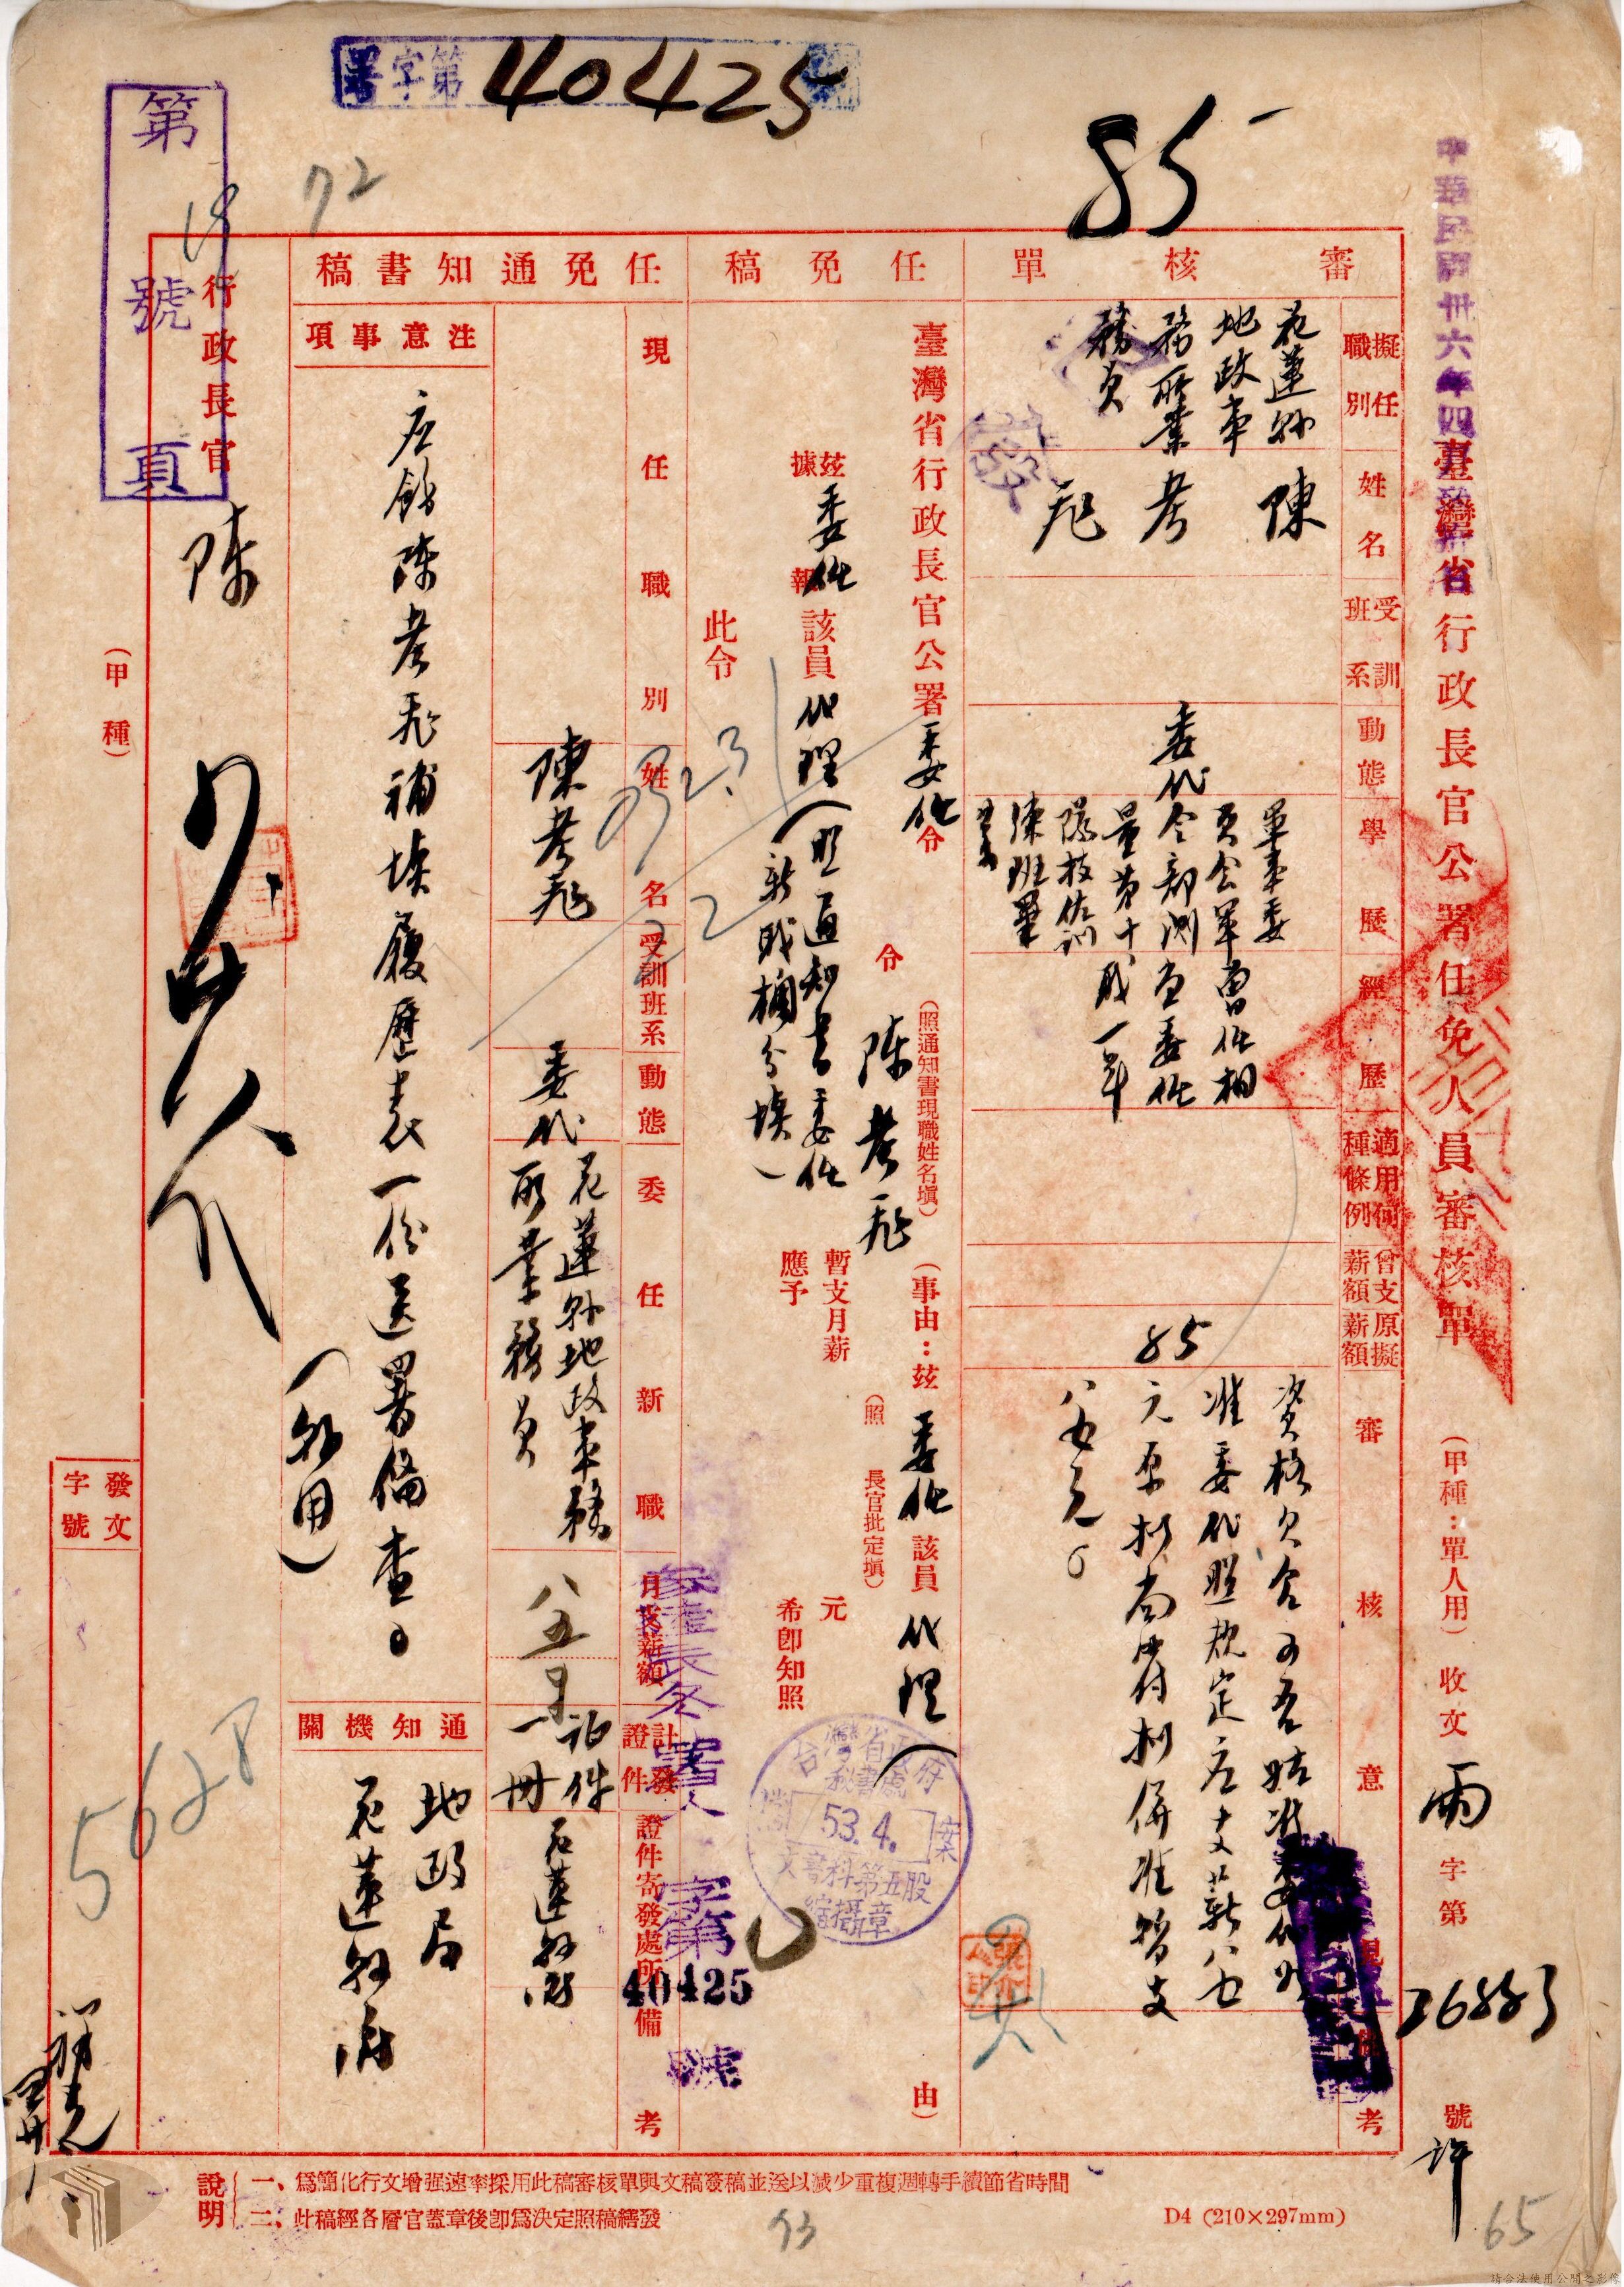 署字第40425號
85
第19號頁
72
中華民國卅六年四
臺灣省行政長官公署任免人員審核單
(甲種：單人用)收文 兩 字第 號
許
審核單
擬任職別
姓名
受訓班系
動態
學歷
經歷
適用何種條例
曾支薪額
原擬薪額
審核意見
備考
花蓮縣
地政事
務所業
務員
陳
考
委代
軍事委
員会軍
令部測
量第十
隊技佐訓
練班畢
業
曾任相
當委任
職一年
85
資格欠合可否姑准委代如
准委代照規定应支薪八五
元原拟尚無不合拟併准暫支
八五元。
任免稿
臺灣省行政長官公署委任令
令 陳考
(照通知書現職姓名塡)
(事由：玆 委任 該員 代理( 由)
玆據 委任 報 該員 代理(照通知書委任
新職欄分填)
暫支月薪 元
應予 希卽知照
(照 長官批定塡)
此令
任免通知書稿
現任職別
姓名
受訓班系
動態
委任新職
月支薪額
計發證件
證件寄發處所
備考
陳考
委代
花蓮縣地政事務
所業務員
八五
证件
一冊
花蓮縣府
參 署人字第40425號
注意事項
应飭陳考 補填履歷表一份送署備查。
(縣用)
通知機關
地政局
花蓮縣府
行政長官 陳
(甲種)
發文字號
5628
台灣省政府秘書處
檔案
53.4.
文書科第五股
縮攝章
說明
一、爲簡化行文增强速率採用此稿審核單與文稿簽稿並送以減少重複週轉手續節省時間
二、此稿經各層官蓋章後卽爲決定照稿繕發
D4 (210×297mm)
93
65
請合法使用公開之影像